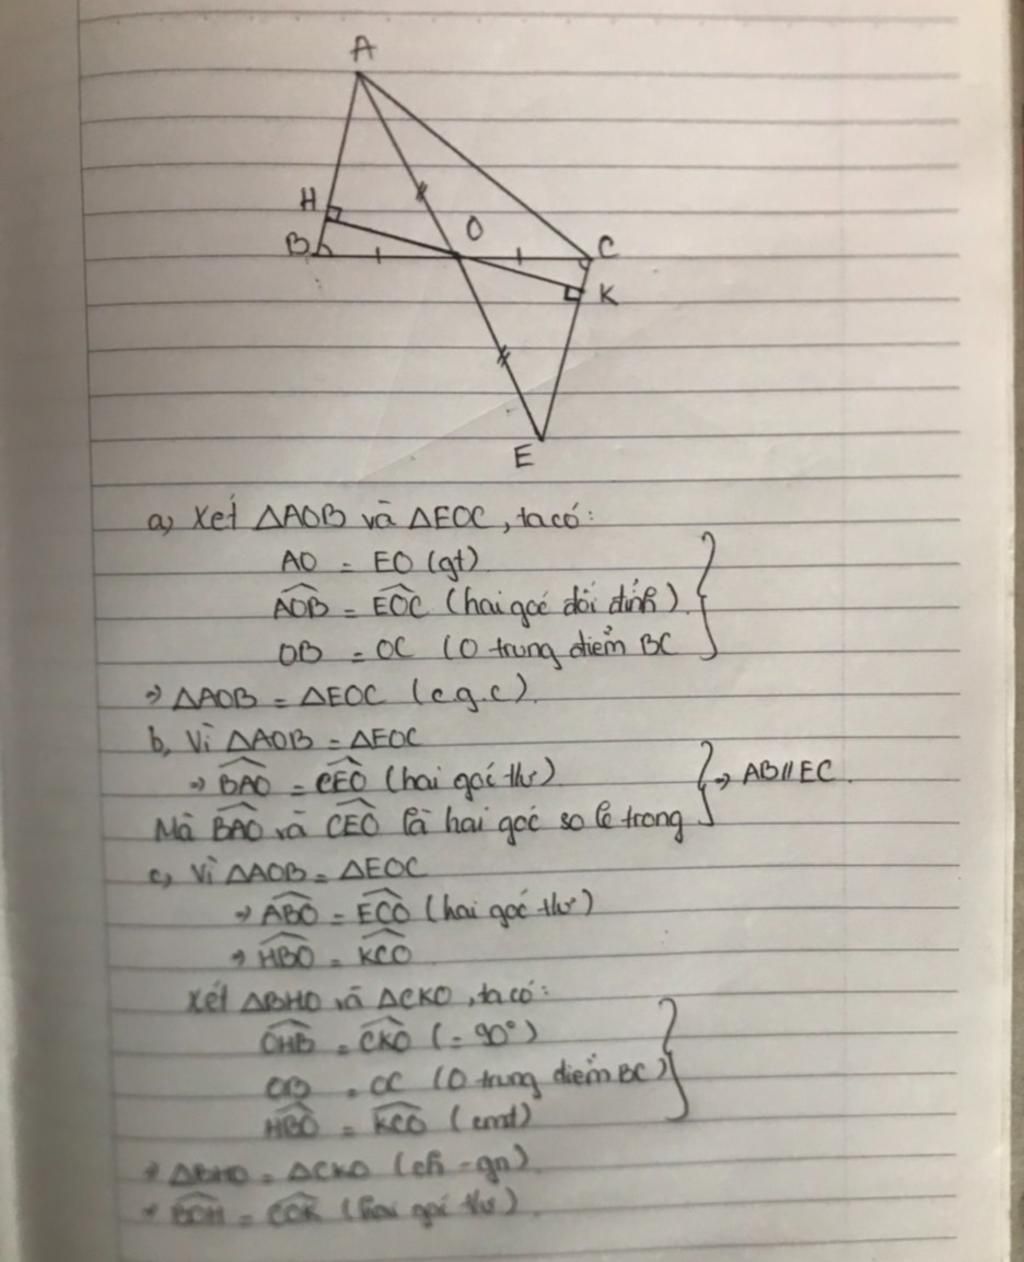 A
H
O
B
C
K
E
a, Xét △AOB và △EOC, ta có:
AO = EO (gt)
AOB = EOC (hai góc đối đỉnh)
OB = OC (O trung điểm BC
⇒ △AOB = △EOC (c.g.c).
b, Vì △AOB = △EOC
⇒ BAO = CEO (hai góc thư) ⇒ AB // EC.
Mà BAO và CEO là hai góc so le trong
c, Vì △AOB = △EOC
⇒ ABO = ECO (hai góc thư)
⇒ HBO = KCO
Xét △BHO và △CKO, ta có:
OHB = CKO (= 90°)
OB = OC (O trung điểm BC)
HBO = KCO (cmt)
⇒ △BHO = △CKO (ch - gn)
⇒ BOH = COK (hai góc thư)